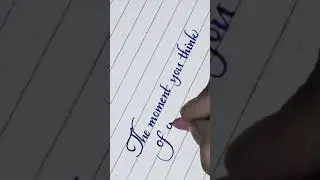 The moment you think
of g